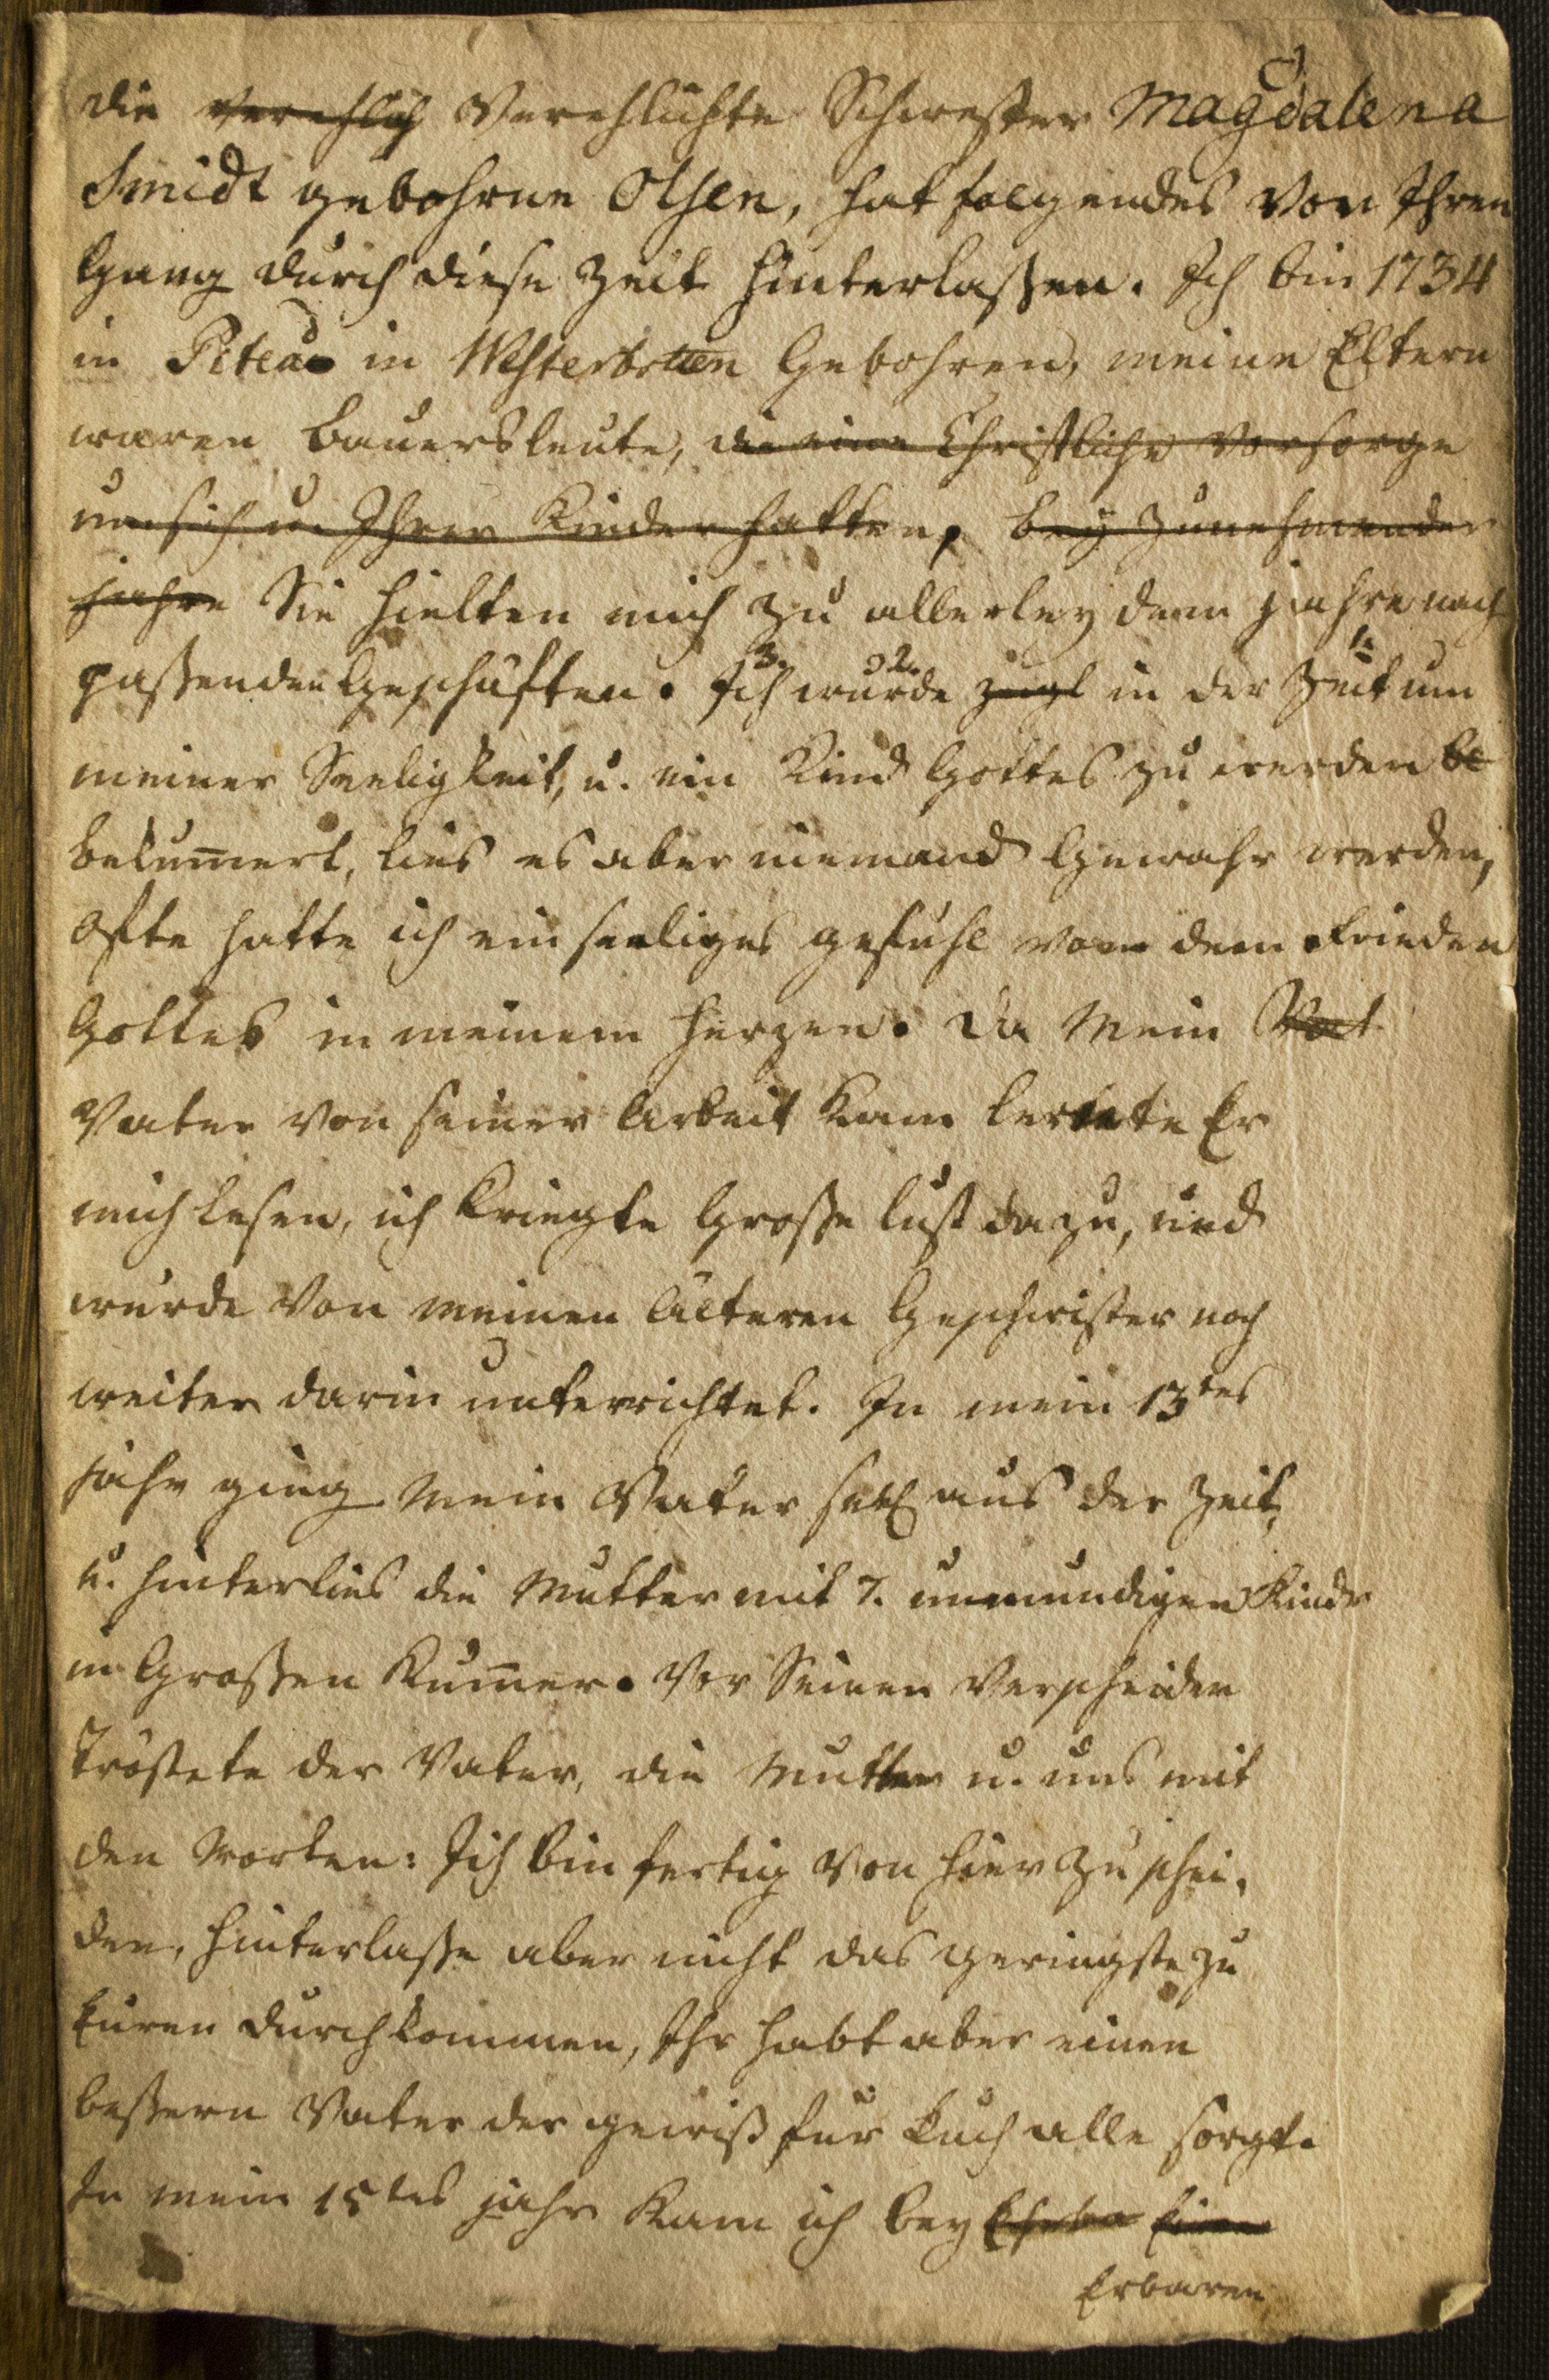 die verehlich Verehlichte Schwester Magdalena
Smidt gebohrne Olsen, hat folgendes von Ihren
Gang durch diese Zeit hinterlaßen. Ich bin 1734
in Pitea in Westerbotten Gebohren, meine Eltern
waren Bauersleute, die eine Christliche Vorsorge
um sich u. Ihren Kinder hatten, bey zunehmender
Jahre Sie hielten mich zu allerley dem Jahre nach
paßenden Geschäften. Ich 3. wurde 2. zugl in der Zeit 1. um
meiner Seeligkeit, u. ein Kind Gottes zu werden be
bekum̄ert, lies es aber niemand Gewahr werden,
Ofte hatte ich ein seeliges gefühl von dem Frieden
Gottes in meinem Herzen. Da Mein Vat
Vater von seiner Arbeit kam lernte Er
mich lesen, ich kriegte Große lust dazu, und
wurde von meinen Älteren Geschwister noch
weiter darin unterrichtet. In mein 13tes
Jahr ging Mein Vater sel aus der Zeit,
u. hinterlies die Mutter mit 7. unmundigen Kindr
in Großen Kum̄er. Vor Seinen Verscheiden
Tröstete der Vater, die Mutter u. uns mit
den Worten: Ich bin fertig von hier zu schei,
den, hinterlaße aber nicht das geringste zu
Euren durchkommen, Ihr habt aber einen
beßern Vater der gewiß für Euch alle sorgt.
In mein 15tes Jahr kam ich bey Einen
Erbaren